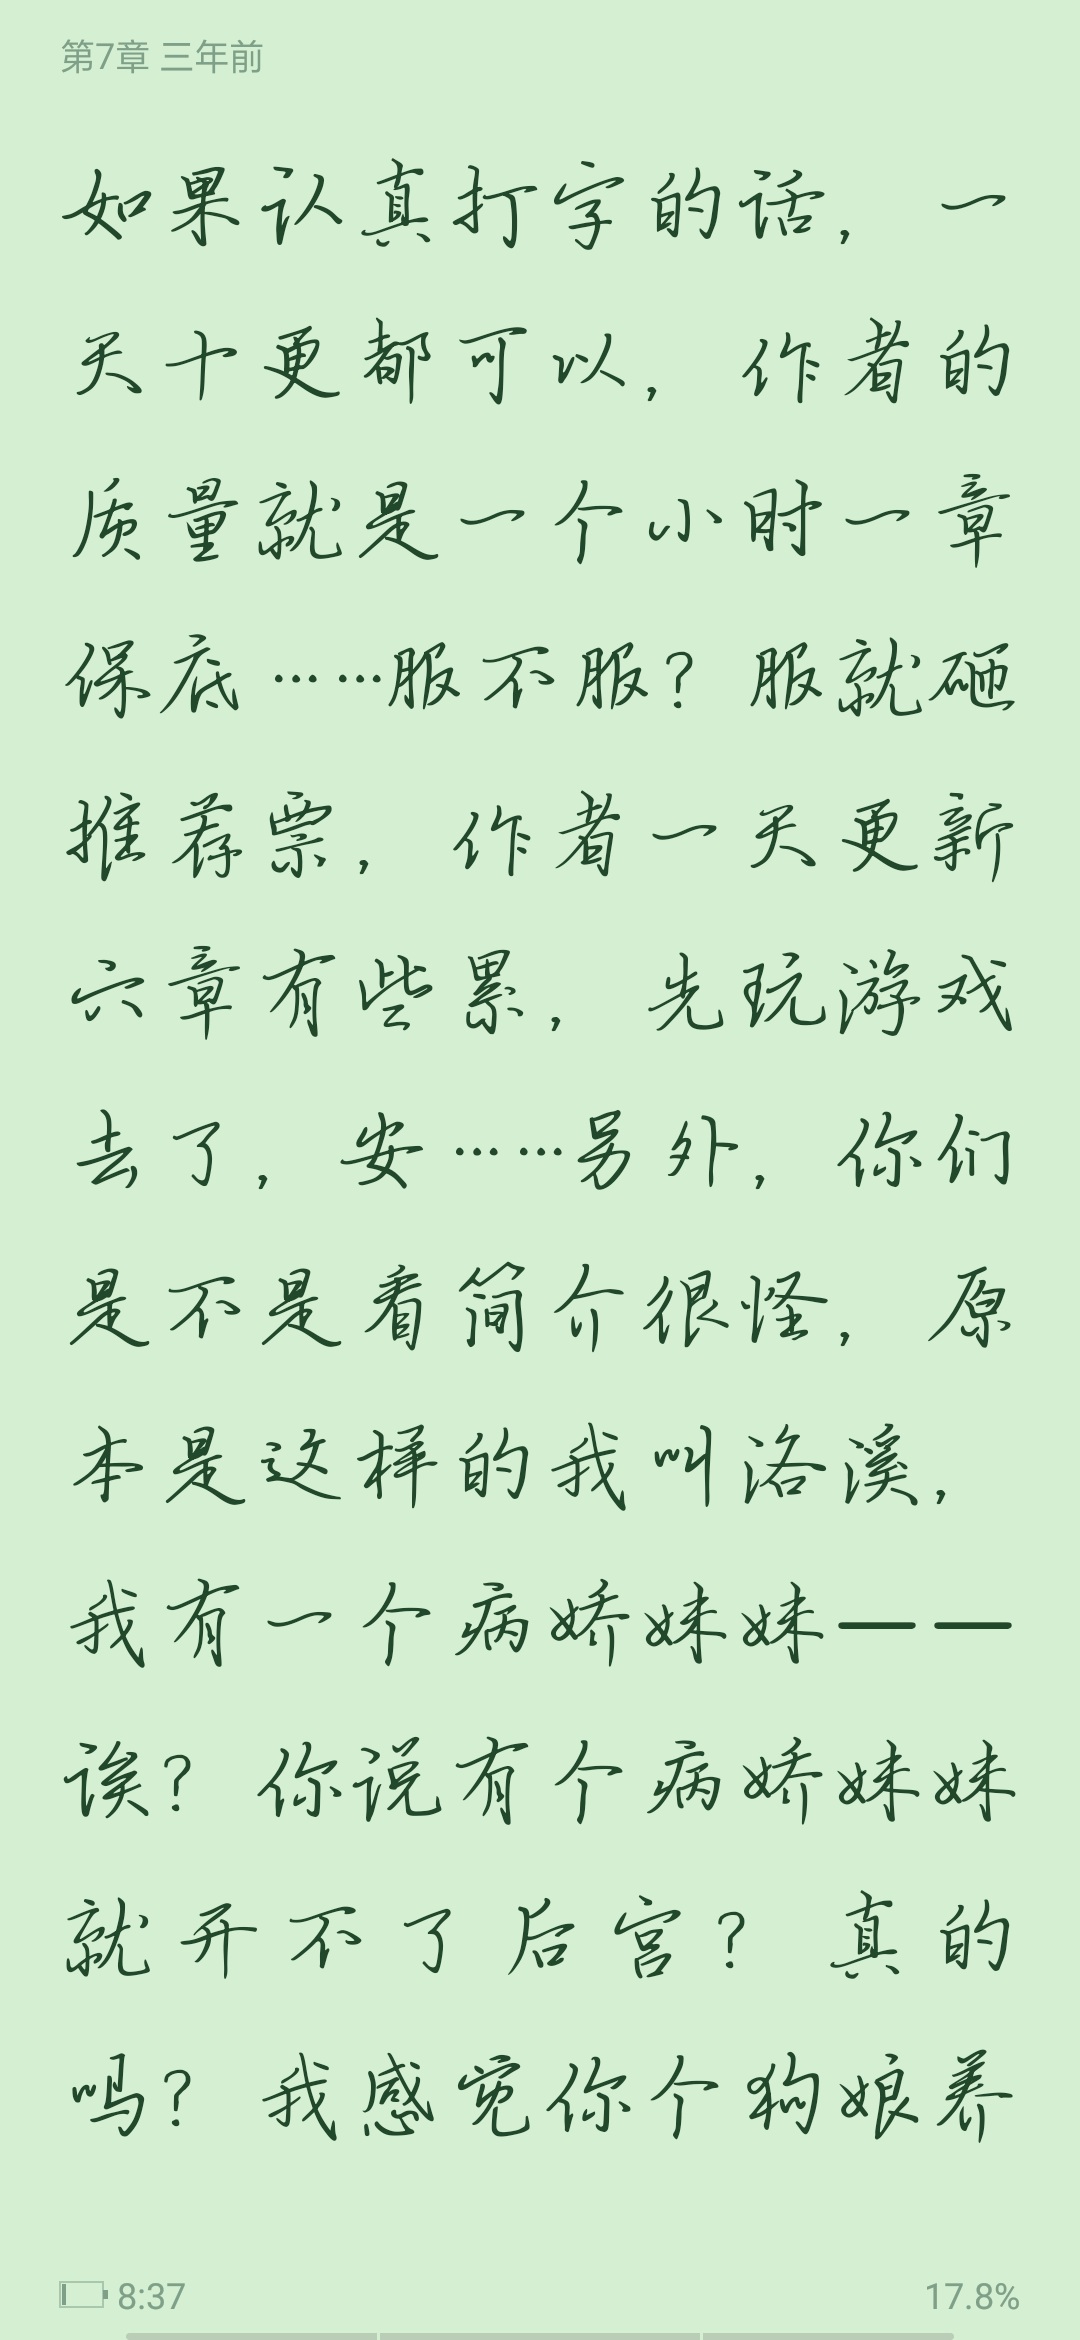 第7章 三年前
如果认真打字的话，一
天十更都可以，作者的
质量就是一个小时一章
保底……服不服？服就砸
推荐票，作者一天更新
六章有些累，先玩游戏
去了，安……另外，你们
是不是看简介很怪，原
本是这样的我叫洛溪，
我有一个病娇妹妹——
诶？你说有个病娇妹妹
就开不了后宫？真的
吗？我感觉你个狗娘养
8:37
17.8%